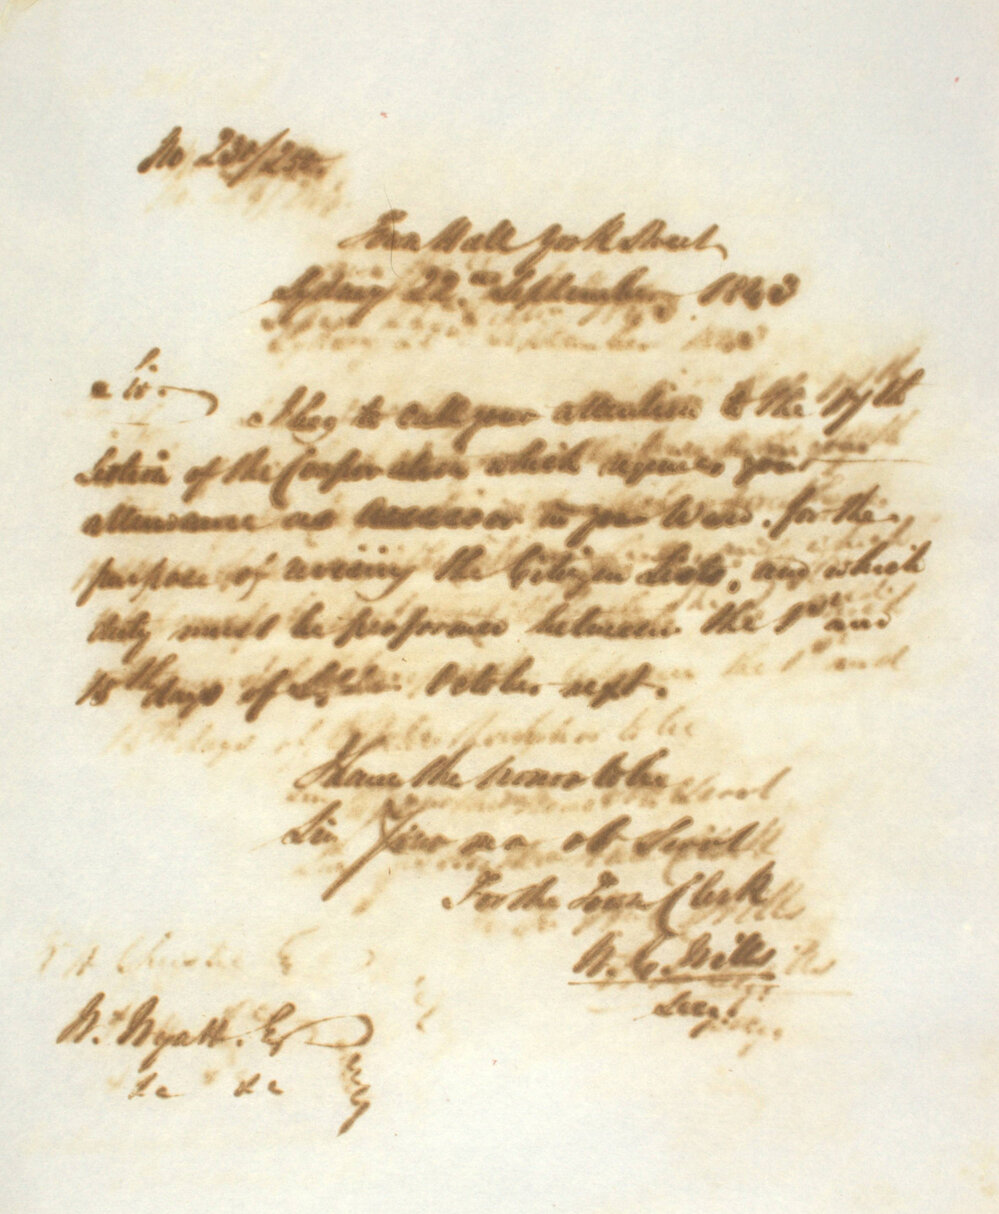 No 230/
Town Hall York Street
Sydney 22nd September 1843
Sir
I beg to call your attention to the
Section of the Corporation which requires your
attendance as Assessor to your Ward. for the
purpose of revising the Citizen Lists, and which
duty must be performed between the 1st and
15th days of October next.
I have the honor to be
Sir Your ob Servt
For the Town Clerk
W. G. Wills
Wm Wyatt. Esq
&c &c